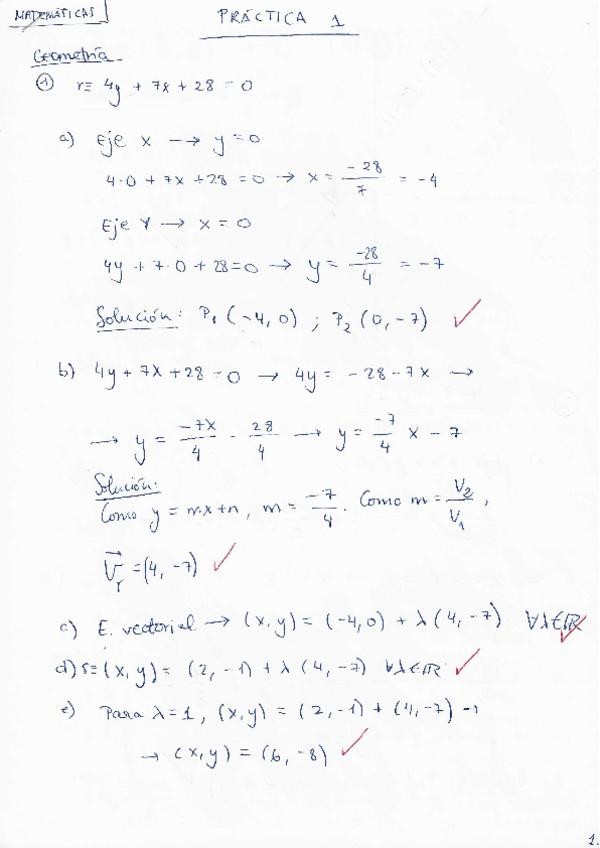 MATEMÁTICAS
PRÁCTICA 1
Geometría
① r≡ 4y + 7x + 28 = 0
a) Eje X → y = 0
4·0 + 7x + 28 = 0 → x = -28/7 = -4
Eje Y → x = 0
4y + 7·0 + 28 = 0 → y = -28/4 = -7
Solución: P₁ (-4, 0) ; P₂ (0, -7) ✓
b) 4y + 7x + 28 = 0 → 4y = -28 - 7x →
→ y = -7x/4 - 28/4 → y = -7/4 x - 7
Solución:
Como y = m·x + n, m = -7/4. Como m = V₂/V₁,
V⃗ᵣ = (4, -7) ✓
c) E. vectorial → (x, y) = (-4, 0) + λ (4, -7) ∀λ∈ℝ ✓
d) s≡ (x, y) = (2, -1) + λ (4, -7) ∀λ∈ℝ ✓
e) Para λ = 1, (x, y) = (2, -1) + (4, -7) →
→ (x, y) = (6, -8) ✓
1.